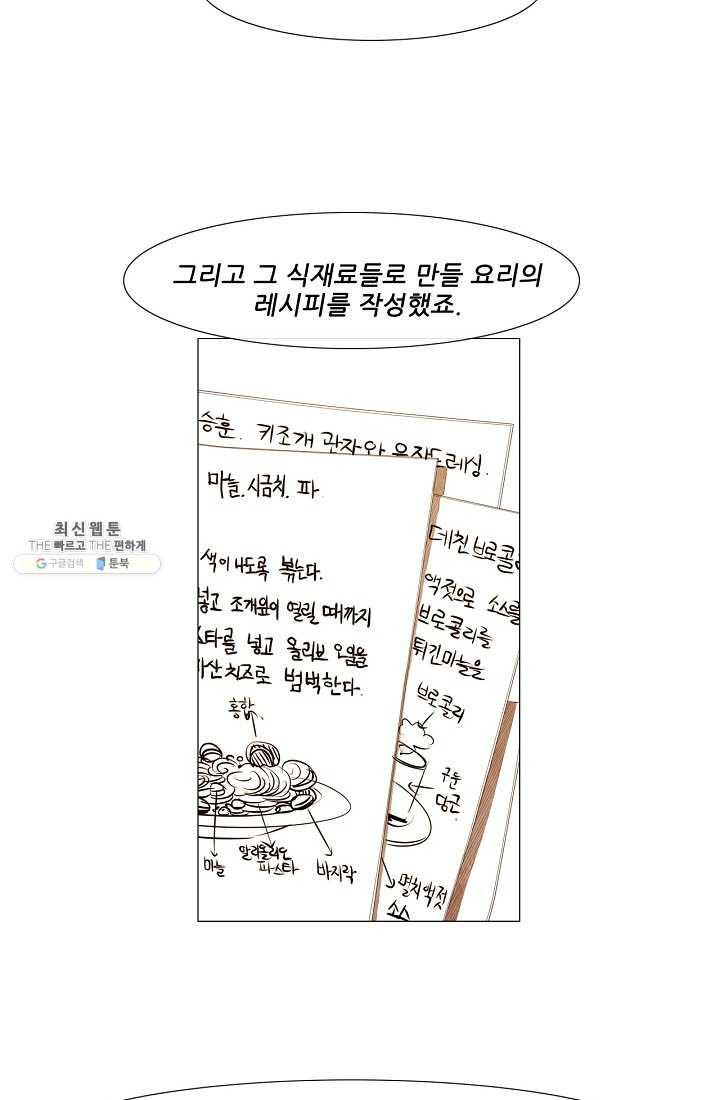 그리고 그 식재료들로 만들 요리의
레시피를 작성했죠.
승훈. 키조개 관자와 유자드레싱.
마늘. 시금치. 파
색이 나도록 볶는다.
넣고 조개입이 열릴 때까지
스타를 넣고 올리브 오일을
산치즈로 범벅한다.
홍합.
마늘
알리올리오
파스타
바지락
데친 브로콜리
액젓으로 소스를
브로콜리를
튀긴마늘을
브로콜리
구운
당근
멸치액젓
소스
최신웹툰
THE 빠르고 THE 편하게
구글검색 툰북